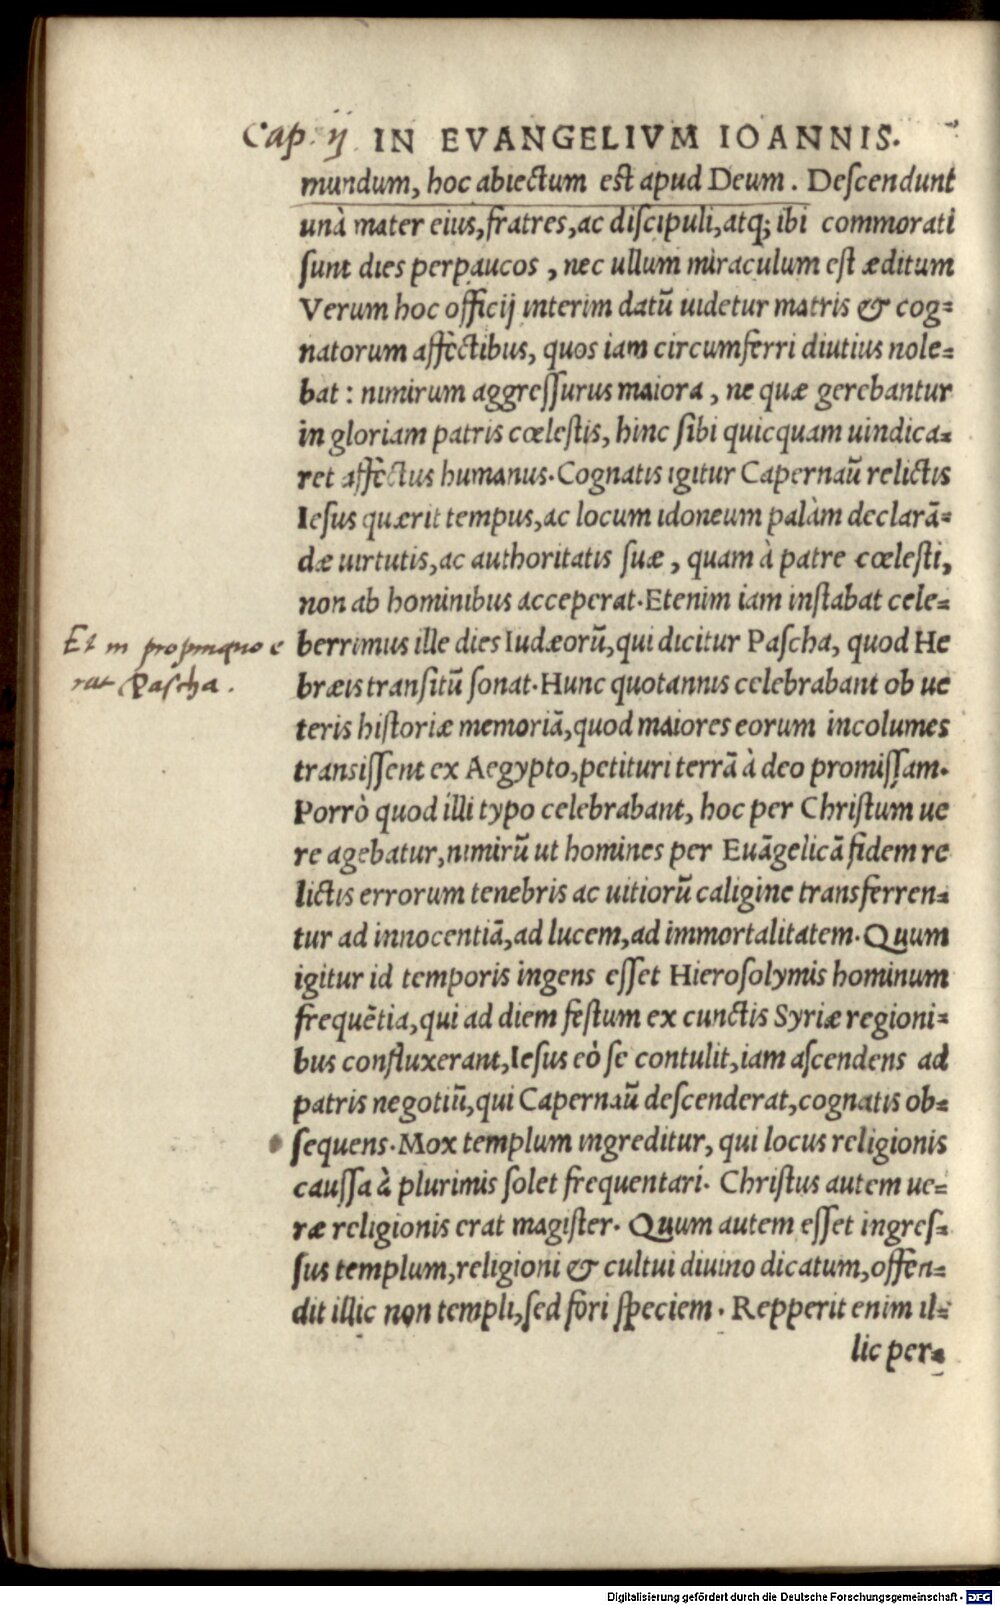 Cap. ij IN EVANGELIVM IOANNIS.
mundum, hoc abiectum est apud Deum. Descendunt
unà mater eius, fratres, ac discipuli, atq; ibi commorati
sunt dies perpaucos, nec ullum miraculum est æditum
Verum hoc officij interim datũ uidetur matris & cog=
natorum affectibus, quos iam circumferri diutius nole=
bat: nimirum aggressurus maiora, ne quæ gerebantur
in gloriam patris cœlestis, hinc sibi quicquam uindica=
ret affectus humanus. Cognatis igitur Capernaũ relictis
Iesus quærit tempus, ac locum idoneum palàm declarã=
dæ uirtutis, ac authoritatis suæ, quam à patre cœlesti,
non ab hominibus acceperat. Etenim iam instabat cele=
Et in propinquo e
rat Pascha.
berrimus ille dies Iudæorũ, qui dicitur Pascha, quod He
bræis transitũ sonat. Hunc quotannis celebrabant ob ue
teris historiæ memoriã, quod maiores eorum incolumes
transissent ex Aegypto, petituri terrã à deo promissam.
Porrò quod illi typo celebrabant, hoc per Christum ue
re agebatur, nimirũ ut homines per Euãgelicã fidem re
lictis errorum tenebris ac uitiorũ caligine transferren=
tur ad innocentiã, ad lucem, ad immortalitatem. Quum
igitur id temporis ingens esset Hierosolymis hominum
frequẽtia, qui ad diem festum ex cunctis Syriæ regioni=
bus confluxerant, Iesus eò se contulit, iam ascendens ad
patris negotiũ, qui Capernaũ descenderat, cognatis ob=
sequens. Mox templum ingreditur, qui locus religionis
caussa à plurimis solet frequentari. Christus autem ue=
ræ religionis erat magister. Quum autem esset ingres=
sus templum, religioni & cultui diuino dicatum, offen=
dit illic non templi, sed fori speciem. Repperit enim il=
lic per=
Digitalisierung gefördert durch die Deutsche Forschungsgemeinschaft - DFG